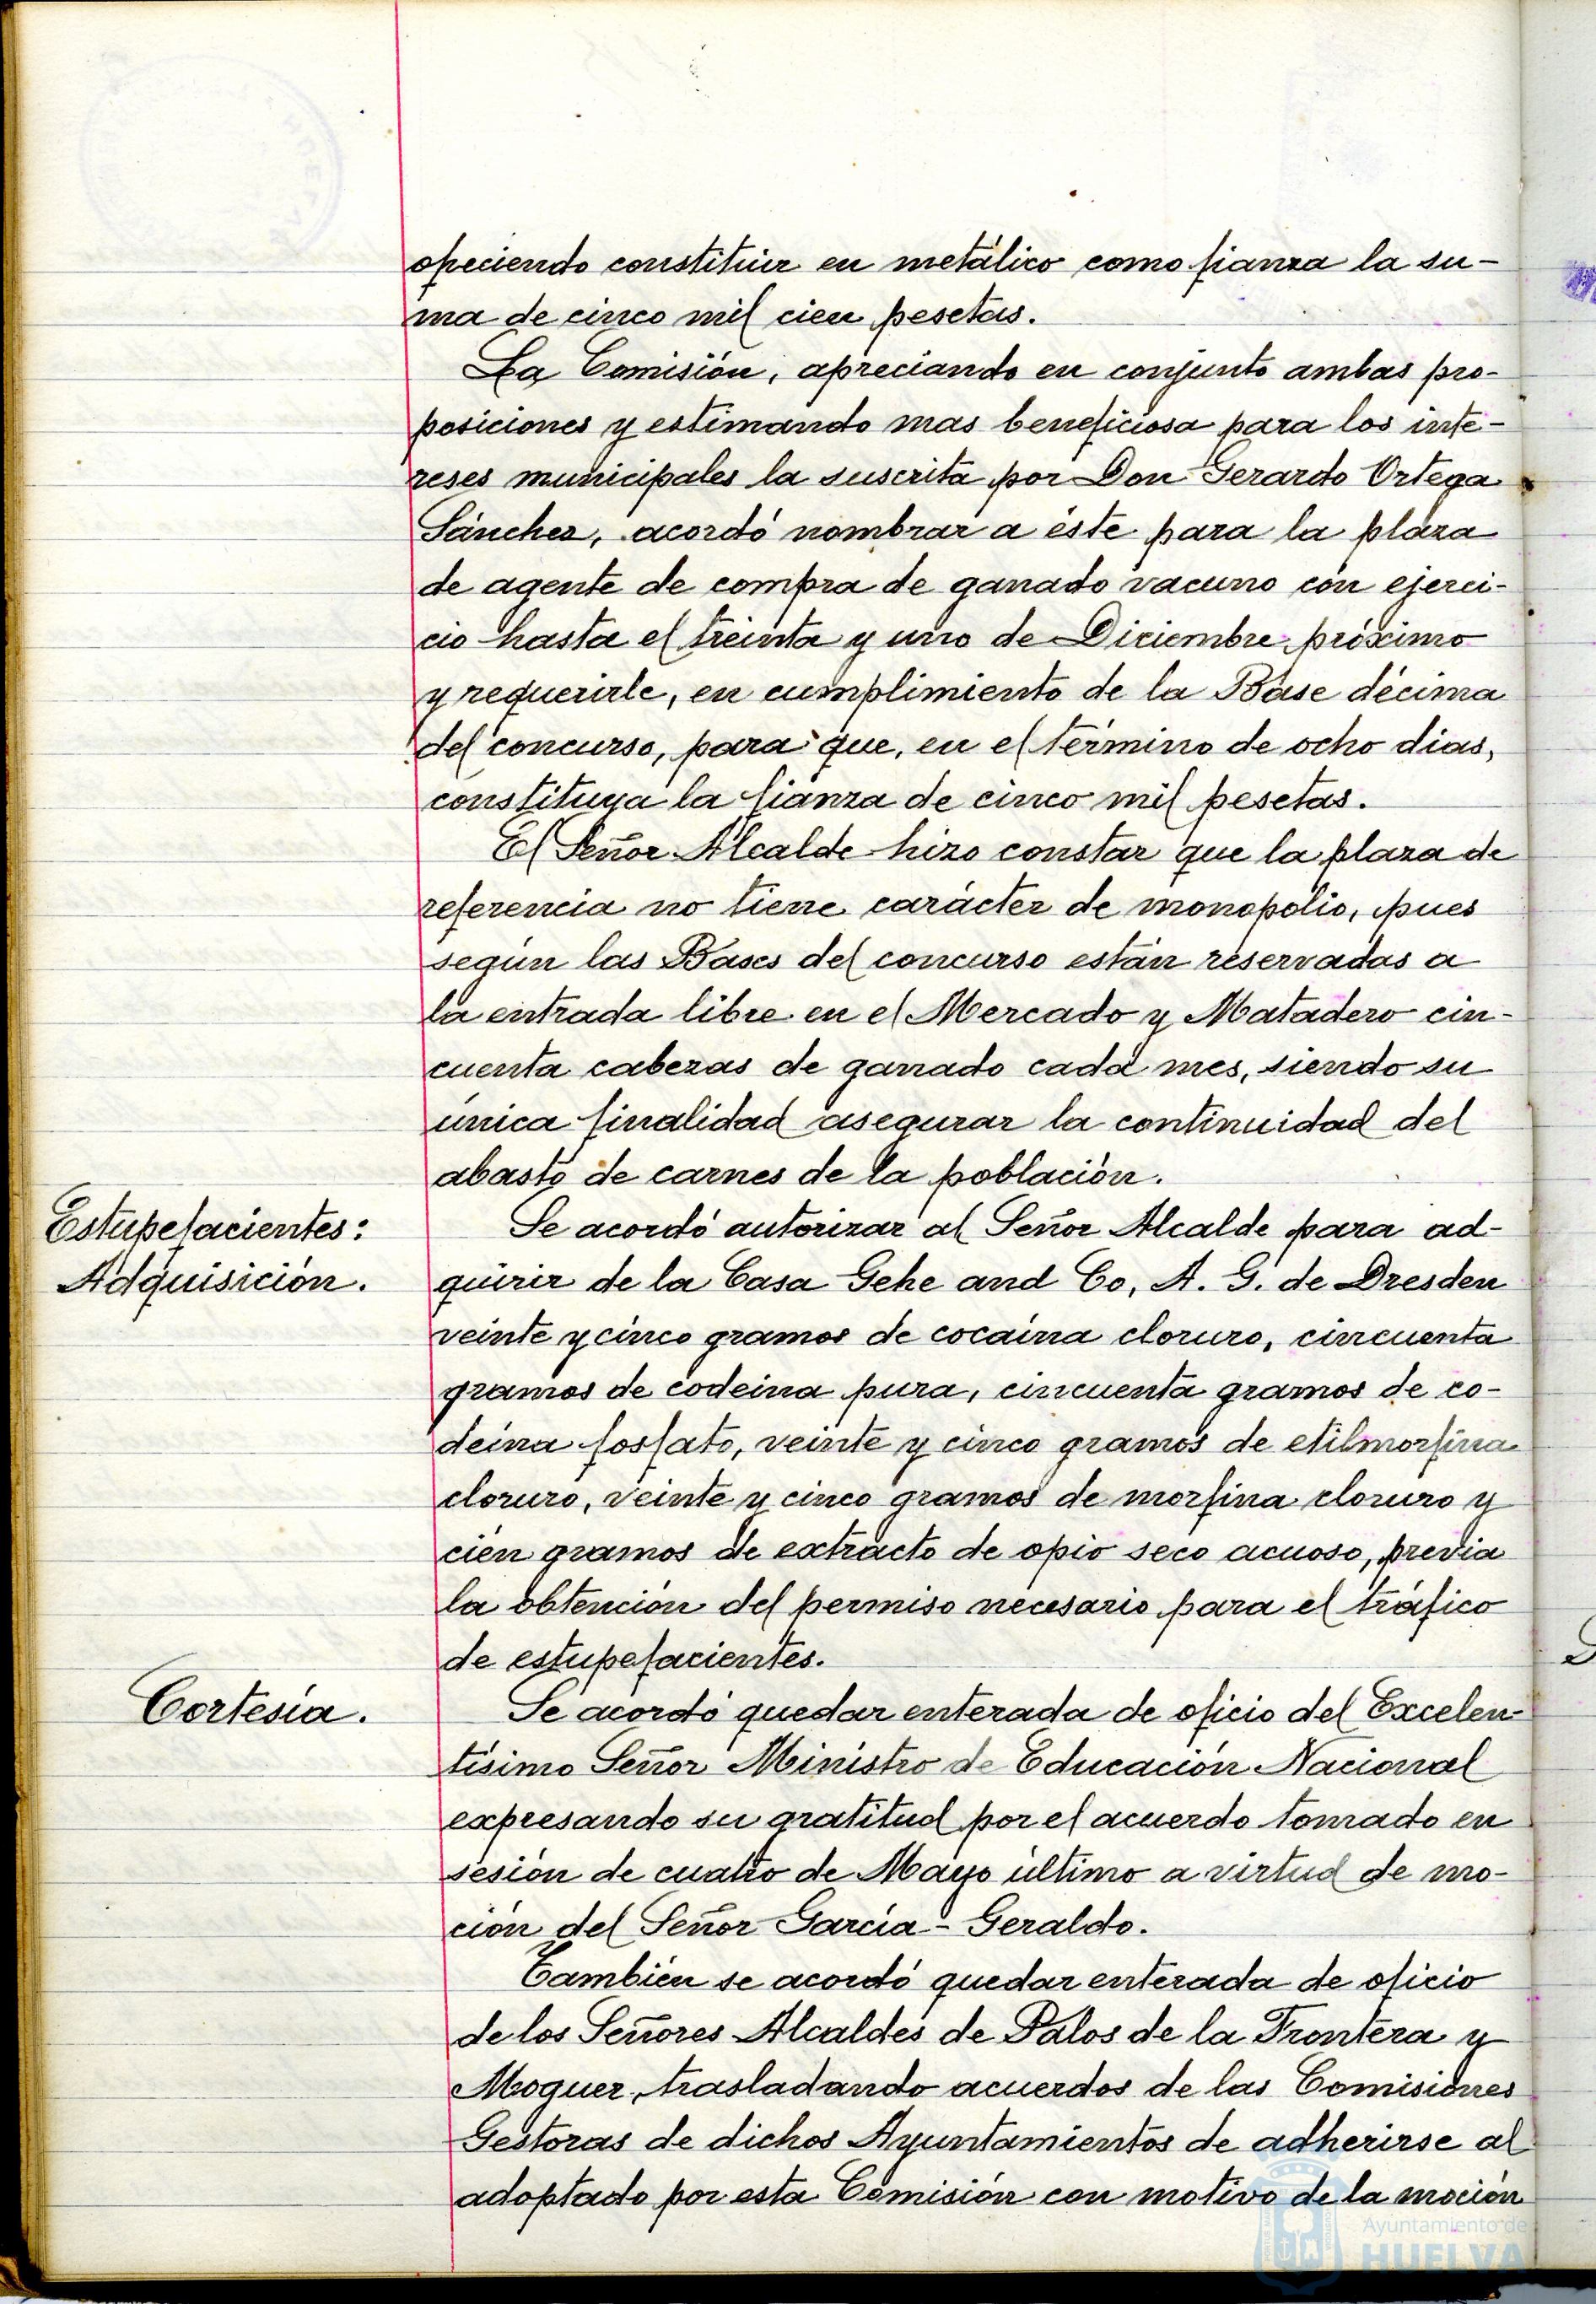 ofreciendo constituir en metálico como fianza la su-
ma de cinco mil cien pesetas.
La Comisión, apreciando en conjunto ambas pro-
posiciones y estimando mas beneficiosa para los inte-
reses municipales la suscrita por Don Gerardo Ortega
Sánchez, acordó nombrar a éste para la plaza
de agente de compra de ganado vacuno con ejerci-
cio hasta el treinta y uno de Diciembre próximo
y requerirle, en cumplimiento de la Base décima
del concurso, para que, en el término de ocho dias,
constituya la fianza de cinco mil pesetas.
El Señor Alcalde hizo constar que la plaza de
referencia no tiene carácter de monopolio, pues
según las Bases del concurso están reservadas a
la entrada libre en el Mercado y Matadero cin-
cuenta cabezas de ganado cada mes, siendo su
única finalidad asegurar la continuidad del
abasto de carnes de la población.
Estupefacientes:
Adquisición.
Se acordó autorizar al Señor Alcalde para ad-
quirir de la Casa Gehe and Co, A. G. de Dresden
veinte y cinco gramos de cocaina cloruro, cincuenta
gramos de codeina pura, cincuenta gramos de co-
deina fosfato, veinte y cinco gramos de etilmorfina
cloruro, veinte y cinco gramos de morfina cloruro y
cien gramos de extracto de opio seco acuoso, previa
la obtención del permiso necesario para el tráfico
de estupefacientes.
Cortesía.
Se acordó quedar enterada de oficio del Excelen-
tísimo Señor Ministro de Educación Nacional
expresando su gratitud por el acuerdo tomado en
sesión de cuatro de Mayo último a virtud de mo-
ción del Señor García-Geraldo.
También se acordó quedar enterada de oficio
de los Señores Alcaldes de Palos de la Frontera y
Moguer, trasladando acuerdos de las Comisiones
Gestoras de dichos Ayuntamientos de adherirse al
adoptado por esta Comisión con motivo de la moción
Ayuntamiento de
HUELVA